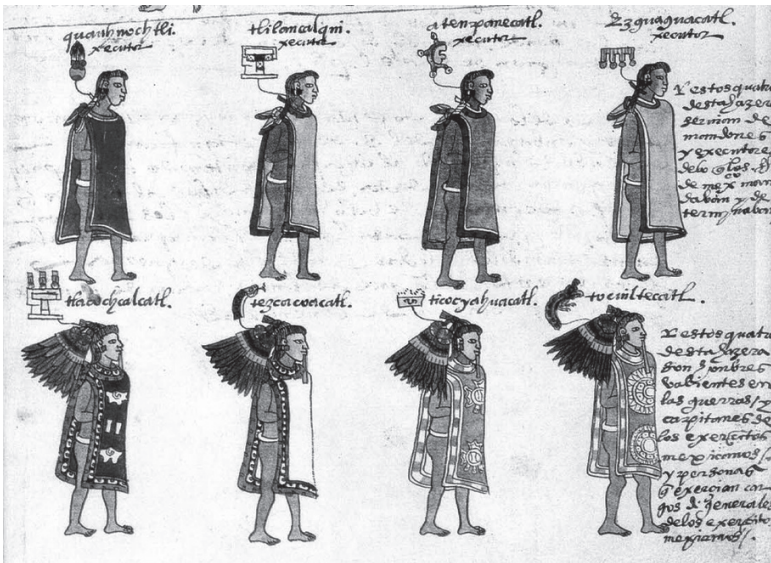 quauhnochtli.
xecutor
tlilancalqui.
xecutor
atenpanecatl.
xecutor
Ezguaguacatl.
xecutor
Y estos quatro
desta hazera
servian de
mandones
y executores
delo q los
de mex man
daban y de
terminaban
tlacochcalcatl.
tezcacoacatl.
ticocyahuacatl.
tocuiltecatl.
Y estos quatro
desta hazera
son honbres
valientes en
las guerras / y
capitanes de
los exercitos
mexicanos /.
y personas
q exercian car
gos de generales
delos exercitos
mexicanos /.